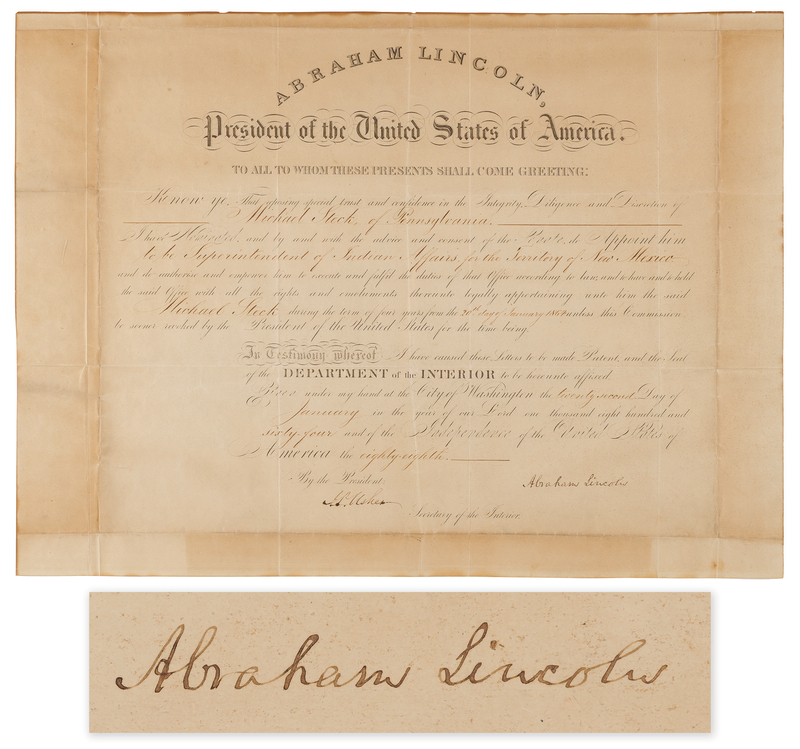 ABRAHAM LINCOLN,
President of the United States of America.
TO ALL TO WHOM THESE PRESENTS SHALL COME GREETING:
Know ye, That reposing special trust and confidence in the Integrity, Diligence and Discretion of
Michael Steck, of Pennsylvania,
I have Nominated, and by and with the advice and consent of the Senate, do Appoint him
to be Superintendent of Indian Affairs, for the Territory of New Mexico
and do authorize and empower him to execute and fulfil the duties of that Office according to law, and to have and to hold
the said Office with all the rights and emoluments thereunto legally appertaining unto him the said
Michael Steck during the term of four years from the 20th day of January 1864 unless this Commission
be sooner revoked by the President of the United States for the time being.
In Testimony whereof, I have caused these Letters to be made Patent, and the Seal
of the DEPARTMENT of the INTERIOR to be hereunto affixed.
Given under my hand at the City of Washington the twenty second Day of
January in the year of our Lord one thousand eight hundred and
sixty-four and of the Independence of the United States of
America the eighty-eighth.
By the President:
Abraham Lincoln
J.P. Usher
Secretary of the Interior.
Abraham Lincoln